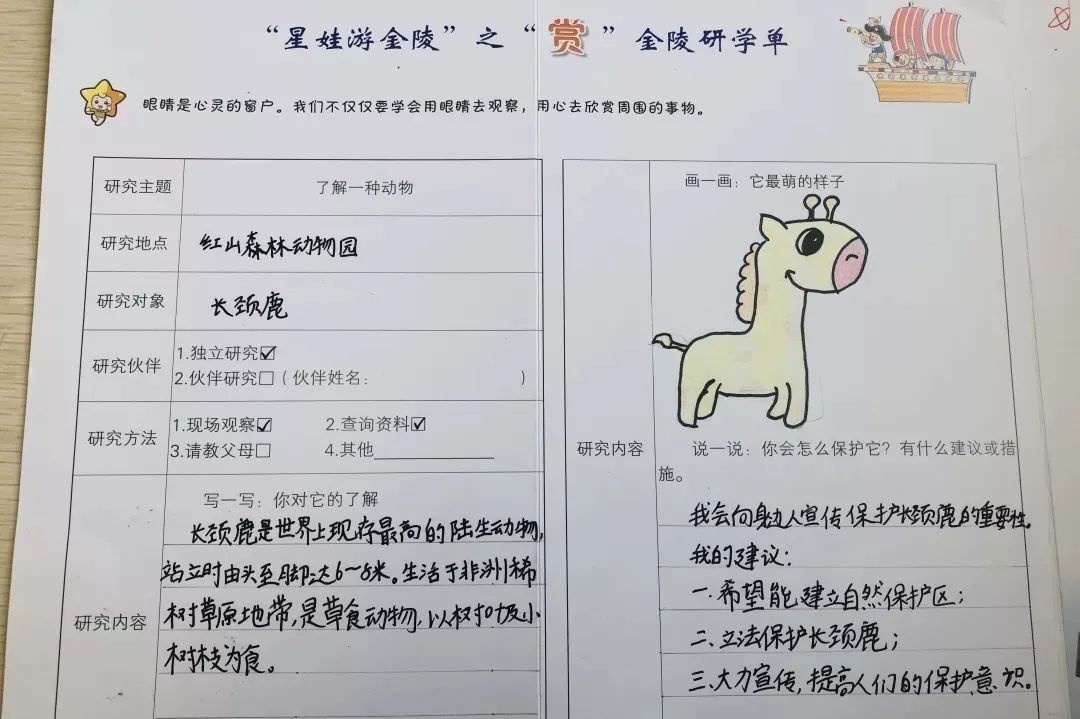 “星娃游金陵”之“赏”金陵研学单
眼睛是心灵的窗户。我们不仅仅要学会用眼睛去观察，用心去欣赏周围的事物。
研究主题
了解一种动物
研究地点
红山森林动物园
研究对象
长颈鹿
研究伙伴
1.独立研究☑
2.伙伴研究☐（伙伴姓名： ）
研究方法
1.现场观察☑ 2.查询资料☑
3.请教父母☐ 4.其他____________
研究内容
写一写：你对它的了解
长颈鹿是世界上现存最高的陆生动物,
站立时由头至脚达6~8米。生活于非洲稀
树草原地带,是草食动物,以树叶及小
树枝为食。
研究内容
画一画：它最萌的样子
说一说：你会怎么保护它？有什么建议或措
施。
我会向身边人宣传保护长颈鹿的重要性。
我的建议：
一.希望能建立自然保护区；
二.立法保护长颈鹿；
三.大力宣传,提高人们的保护意识。